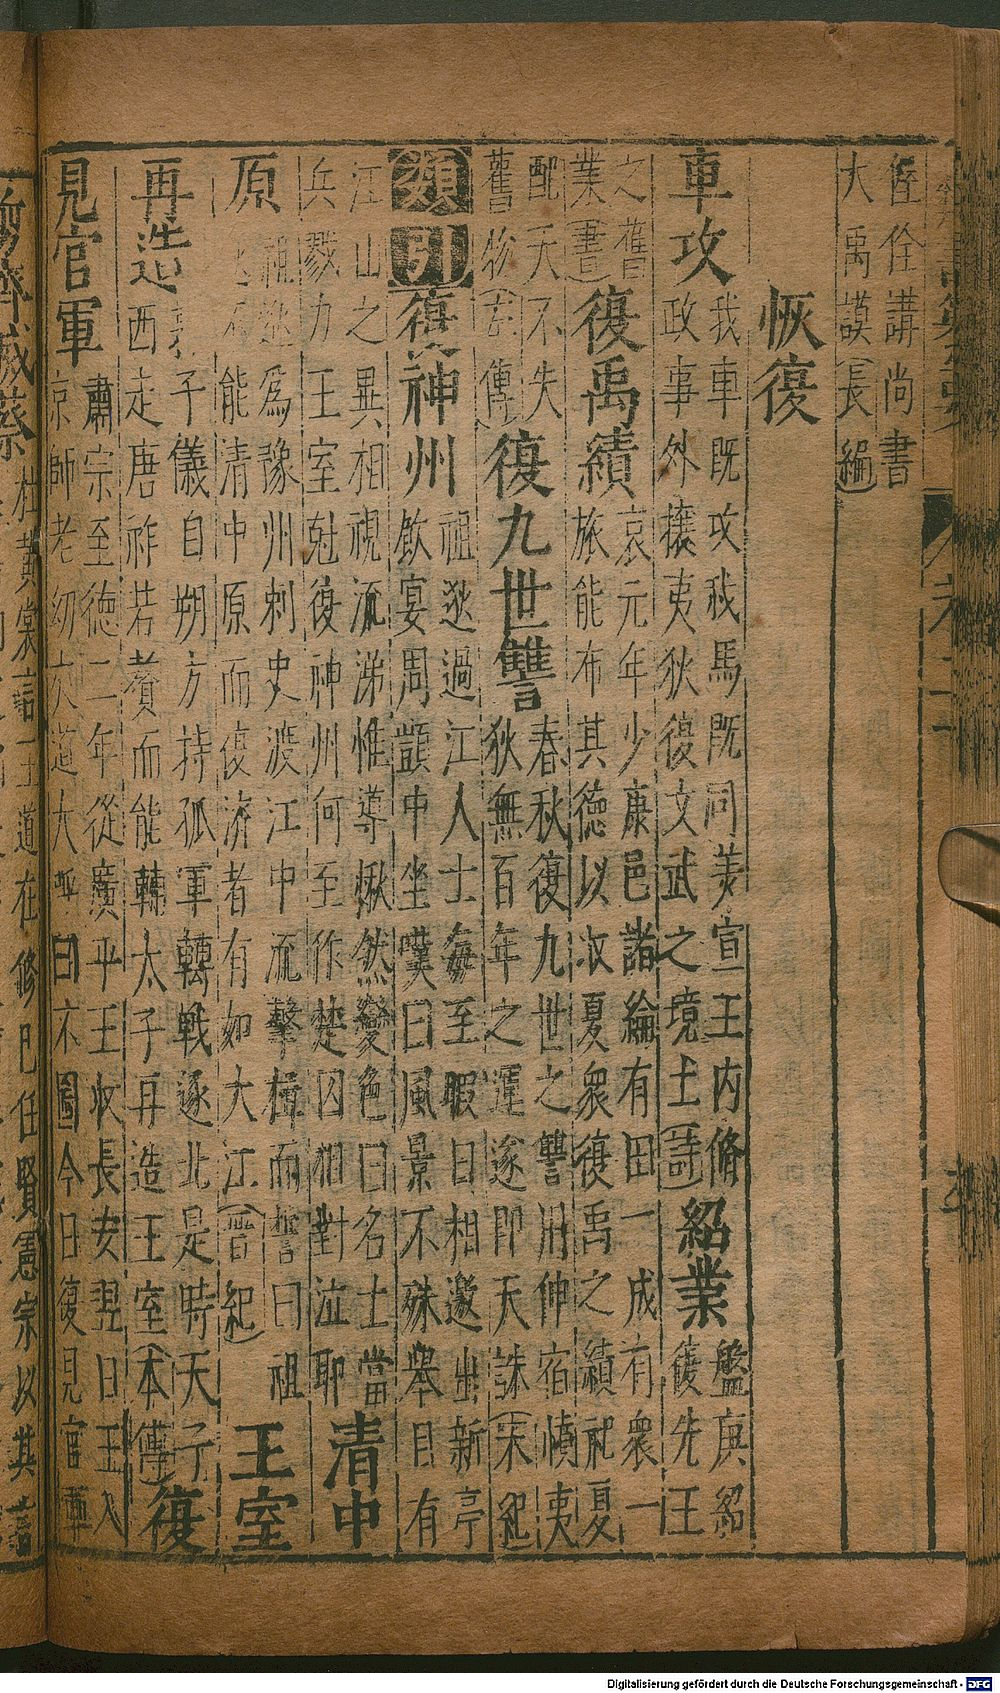 侄佺講尚書
大禹謨(長編)
恢復
車攻
我車既攻我馬既同美宣王内脩
政事外攘夷狄復文武之境土(詩)
紹業
盤庚紹
復先王
之舊
業(書)
復禹績
哀元年少康邑諸綸有田一成有衆一
旅能布其德以收夏衆復禹之績祀夏
配天不失
舊物(左傳)
復九世讐
春秋復九世之讐用伸宿憤夷
狄無百年之運遂即天誅(宋紀
類引
復神州
祖逖過江人士每至暇日相邀出新亭
飲宴周顗中坐嘆曰風景不殊舉目有
江山之異相視流涕惟導愀然變色曰名士當
兵戮力王室尅復神州何至作楚囚相對泣耶
清中
原
祖逖為豫州刺史渡江中流擊楫而誓曰祖
能清中原而復濟者有如大江(晉紀)
王室
再造
子儀自朔方持孤軍轉戰逐北是時天子
西走唐祚若贅而能輔太子再造王室(本傳)
復
見官軍
肅宗至德二年從廣平王收長安翌日王入
京師老幼夾道大呼曰不圖今日復見官軍
杜黃裳言王道在修己任賢憲宗以其言
Digitalisierung gefördert durch die Deutsche Forschungsgemeinschaft - DFG